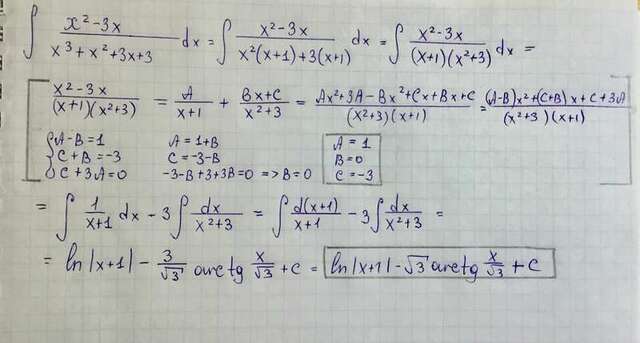 ∫ (x²-3x)/(x³+x²+3x+3) dx = ∫ (x²-3x)/(x²(x+1)+3(x+1)) dx = ∫ (x²-3x)/((x+1)(x²+3)) dx =
[ (x²-3x)/((x+1)(x²+3)) = A/(x+1) + (Bx+C)/(x²+3) = (Ax²+3A-Bx²+Cx+Bx+C)/((x²+3)(x+1)) = ((A-B)x²+(C+B)x+C+3A)/((x²+3)(x+1))
{ A-B=1 A=1+B A=1
C+B=-3 C=-3-B B=0
C+3A=0 -3-B+3+3B=0 => B=0 C=-3 ]
= ∫ 1/(x+1) dx - 3 ∫ dx/(x²+3) = ∫ d(x+1)/(x+1) - 3 ∫ dx/(x²+3) =
= ln|x+1| - 3/√3 arctg x/√3 + C = ln|x+1| - √3 arctg x/√3 + C